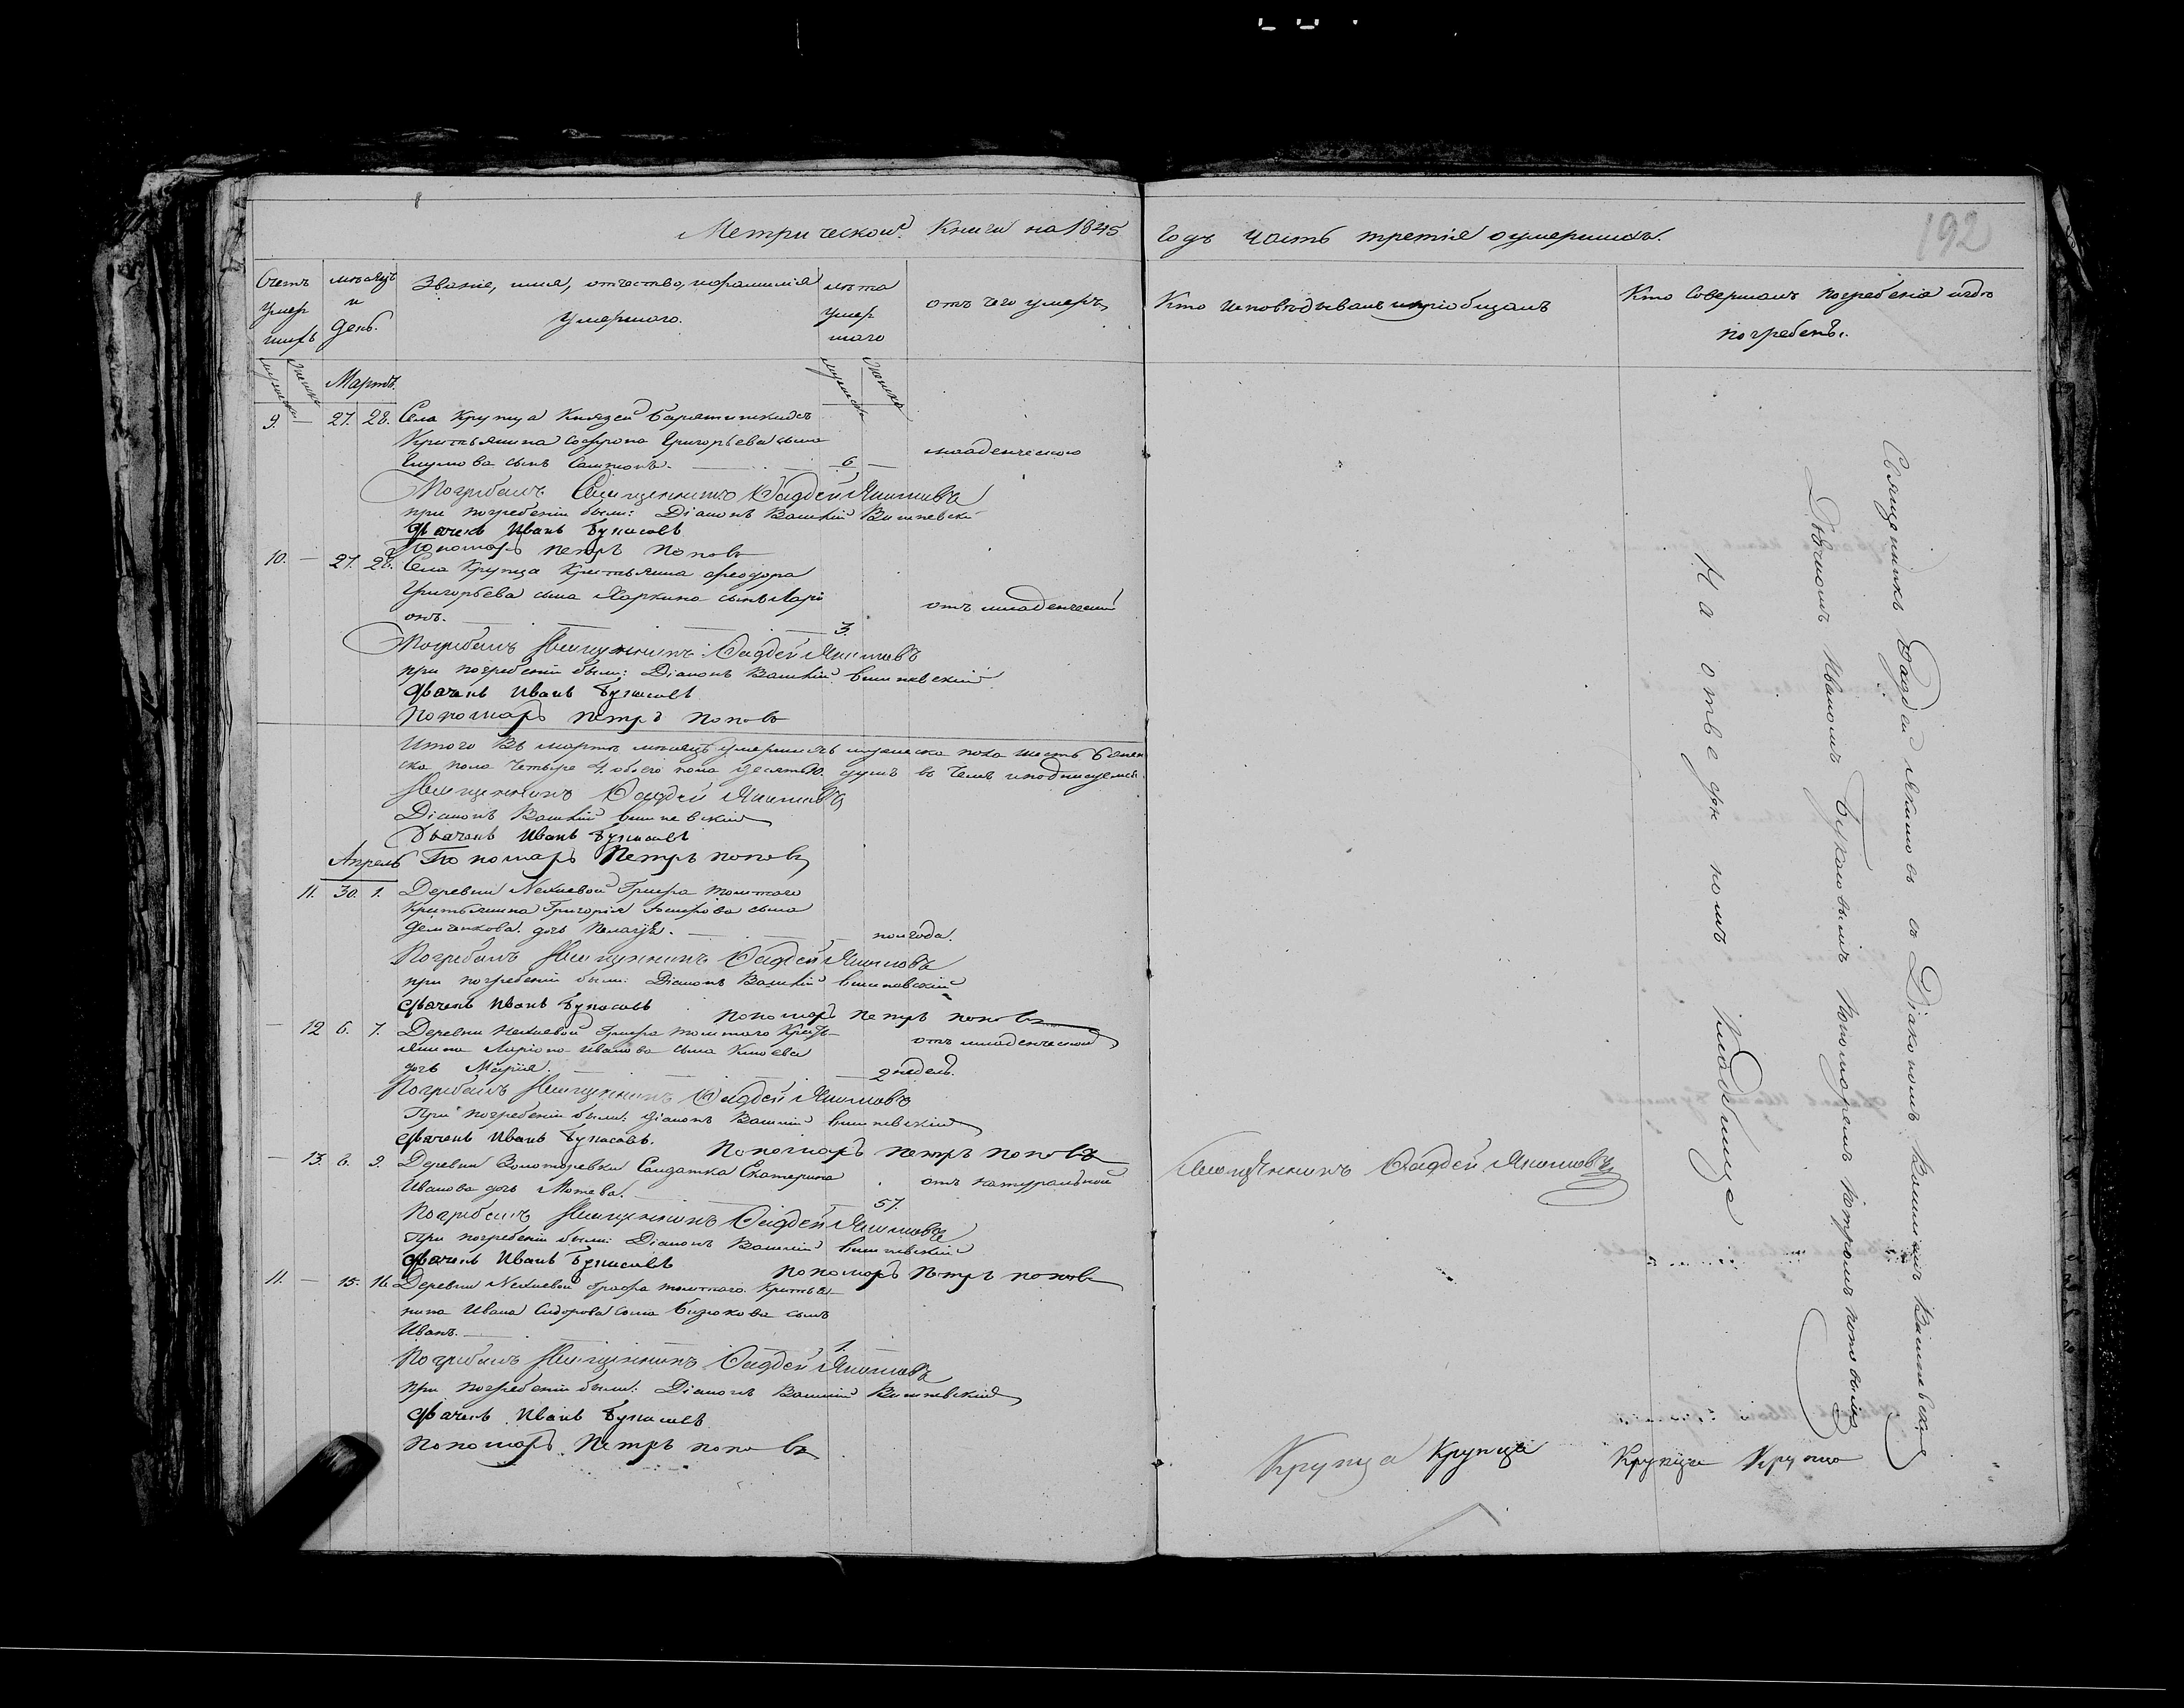 Метрической Книги на 1845
Годъ Часть третія о умершихъ.
192
Счетъ умершихъ
мѣсяцъ и день.
Званіе, имя, отчество, и фамилія умершаго.
лѣта умершаго
отъ чего умеръ
Кто исповѣдывалъ и пріобщалъ
Кто Совершалъ погребеніе и гдѣ погребенъ.
Мартъ.
9. — 27. 28. Села Крупца Князей Барятинскихъ
Крестьянина Софрона Григорьева сына
сынъ Самсонъ. — 6 — младенческою
Погребалъ Священникъ Фаддей Якимовъ
при погребеніи были: Діаконъ Василій Вишневскій
Дьячекъ Иванъ Букасовъ
Пономарь Петръ Поповъ
10. — 27. 28. Села Крупца Крестьянина Феодора
Григорьева сына Харкина сынъ Ларі
онъ. — 3. отъ младенческой
Погребалъ Священникъ Фаддей Якимовъ
при погребеніи были: Діаконъ Василій Вишневскій
Дьячекъ Иванъ Букасовъ
Пономарь Петръ Поповъ
Итого Въ мартѣ мѣсяцѣ умершихъ мужеска пола шесть 6 жен
ска пола четыре 4. обоего пола десять 10. душъ въ чемъ и подписуемся.
Священникъ Фаддей Якимовъ
Діаконъ Василій Вишневскій
Дьячекъ Иванъ Букасовъ
Апрель Пономарь Петръ Поповъ
11. 30. 1. Деревни Графа Толстаго
Крестьянина Григорія сына
дочь Пелагѣя. — полгода.
Погребалъ Священникъ Фаддей Якимовъ
при погребеніи были: Діаконъ Василій Вишневскій
Дьячекъ Иванъ Букасовъ Пономарь Петръ Поповъ
— 12 6. 7. Деревни Графа Толстаго Кресть
янина Ларіона Иванова сына
дочь Марія. — 2 недель. отъ младенческой
Погребалъ Священникъ Фаддей Якимовъ
При погребеніи были: Діаконъ Василій Вишневскій
Дьячекъ Иванъ Букасовъ. Пономарь Петръ Поповъ
— 13. 6. 9. Деревни Золотаревки Салдатка Екатерина
Иванова дочь Мотева. — 57. отъ натуральной
Священникъ Фаддей Якимовъ
Погребалъ Священникъ Фаддей Якимовъ
При погребеніи были: Діаконъ Василій Вишневскій
Дьячекъ Иванъ Букасовъ Пономарь Петръ Поповъ
11. — 15. 16. Деревни Графа Толстаго Крестья
нина Ивана Сидорова сына Бирюкова сынъ
Иванъ. — 1.
Погребалъ Священникъ Фаддей Якимовъ
при погребеніи были: Діаконъ Василій Вишневскій
Дьячекъ Иванъ Букасовъ
Пономарь Петръ Поповъ
Священникъ Фаддей Якимовъ съ Діакономъ Василіемъ Вишневскимъ
Дьячкомъ Иваномъ Букасовымъ Пономаремъ Петромъ Поповымъ
На отведенномъ кладбище
Крупца Крупца Крупца Крупца